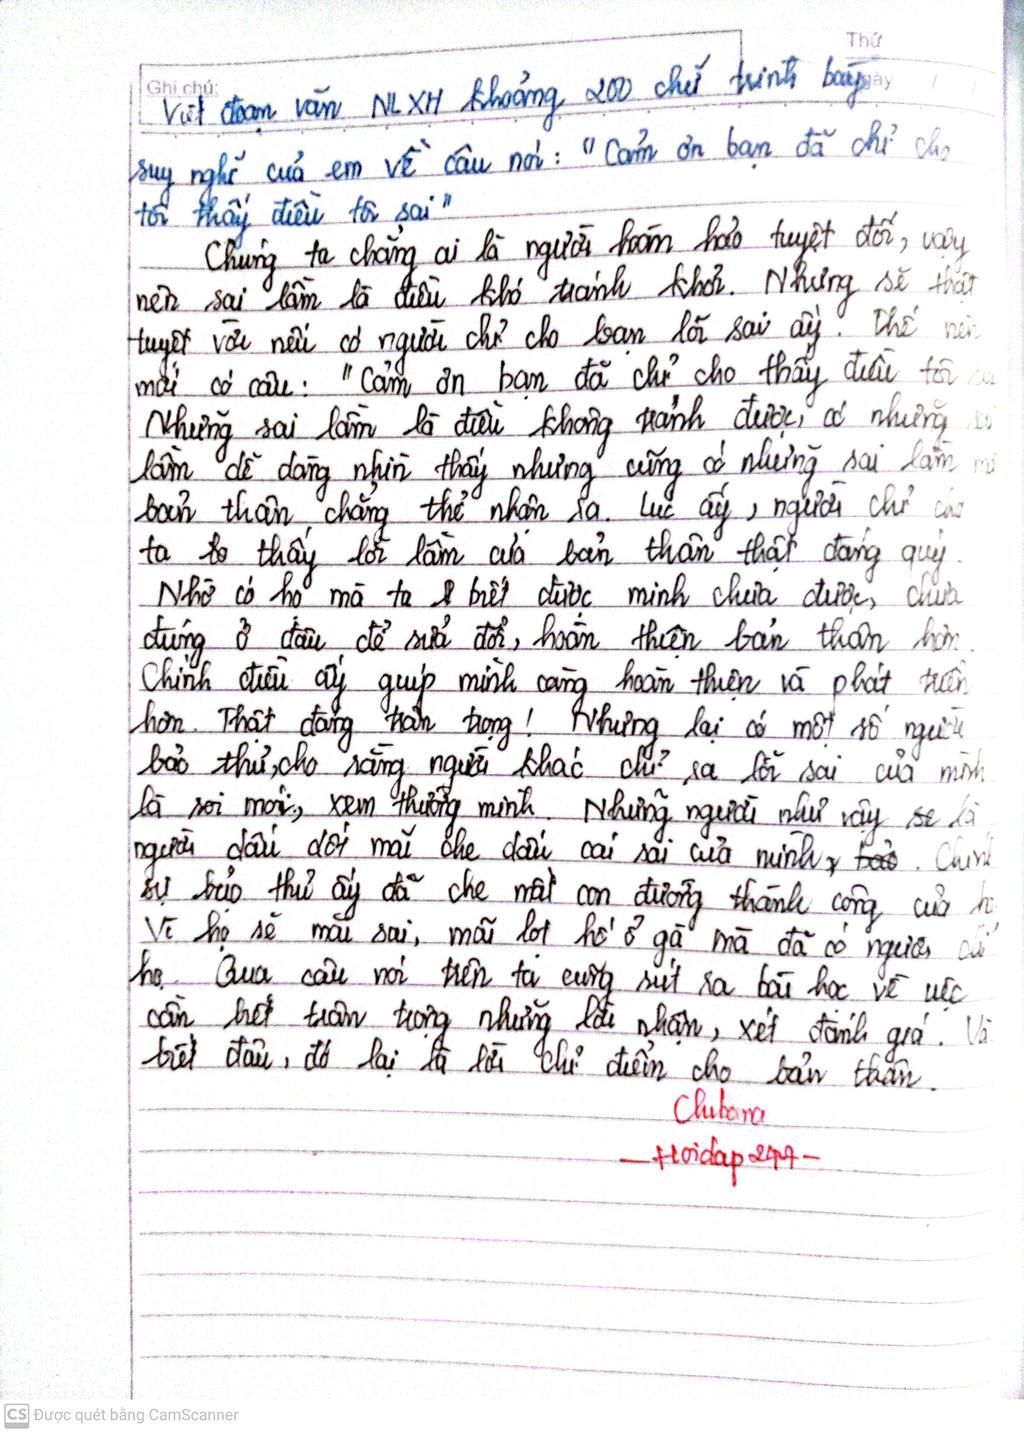 Thứ
Ghi chú:
Ngày
Viết đoạn văn NLXH khoảng 200 chữ trình bày
suy nghĩ của em về câu nói: "Cảm ơn bạn đã chỉ cho
tôi thấy điều tôi sai"
Chúng ta chẳng ai là người hoàn hảo tuyệt đối, vậy
nên sai lầm là điều khó tránh khỏi. Nhưng sẽ thật
tuyệt vời nếu có người chỉ cho bạn lỗi sai ấy. Thế nên
mới có câu: "Cảm ơn bạn đã chỉ cho thấy điều tôi
Những sai lầm là điều không tránh được, có những
lầm dễ dàng nhìn thấy nhưng cũng có những sai lầm mà
bản thân chẳng thể nhận ra. Lúc ấy, người chỉ cho
ta thấy lỗi lầm của bản thân thật đáng quý.
Nhờ có họ mà ta biết được mình chưa được, chưa
đúng ở đâu để sửa đổi, hoàn thiện bản thân hơn.
Chính điều ấy giúp mình càng hoàn thiện và phát triển
hơn. Thật đáng trân trọng! Nhưng lại có một số người
bảo thủ, cho rằng người khác chỉ ra lỗi sai của mình
là soi mói, xem thường mình. Những người như vậy sẽ là
người dấu dốt mãi che dấu cái sai của mình. Chính
sự bảo thủ ấy đã che mất con đường thành công của họ
Vì họ sẽ mãi sai, mãi lọt hố ổ gà mà đã có người chỉ
họ. Qua câu nói trên ta cũng rút ra bài học về việc
cần biết trân trọng những lời nhận, xét đánh giá. Và
biết đâu, đó lại là lời chỉ điểm cho bản thân.
Chibana
-Hoidap247-
CS Được quét bằng CamScanner